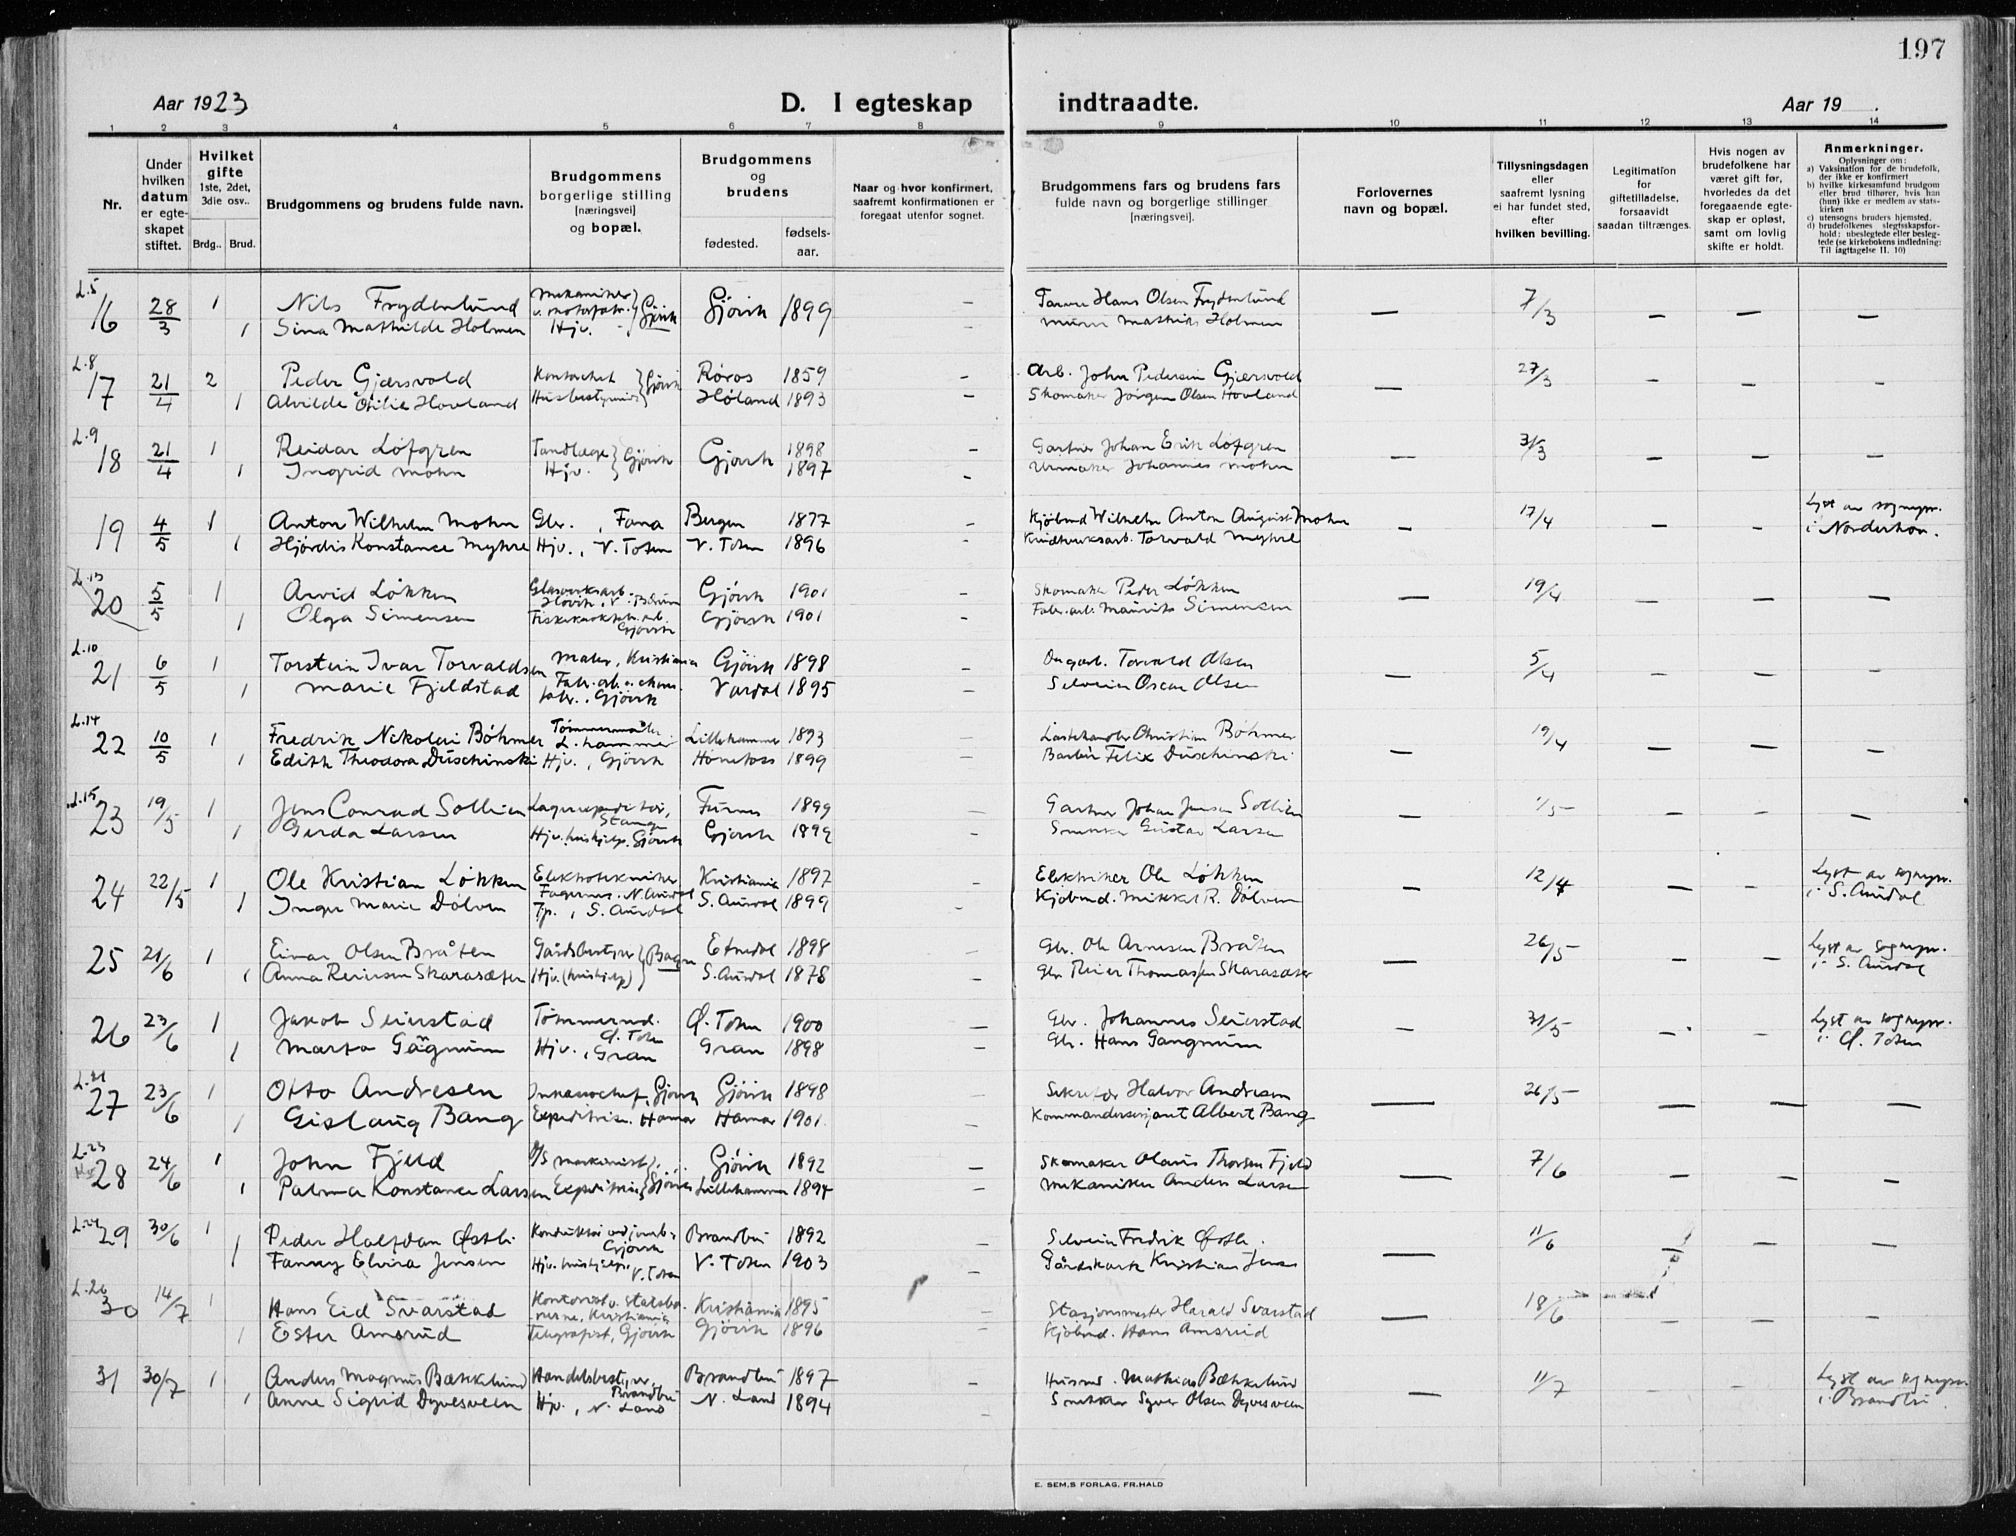 197
Aar 1923
D. I egteskap
indtraadte.
Aar 19 .
1 2 3 4 5 6 7 8 9 10 11 12 13 14
Nr.
Under hvilken datum er egteskapet stiftet.
Hvilket gifte 1ste, 2det, 3die osv..
Brdg.. Brud.
Brudgommens og brudens fulde navn.
Brudgommens borgerlige stilling [næringsvei] og bopæl.
Brudgommens og brudens
fødested.
fødsels-aar.
Naar og hvor konfirmert, saafremt konfirmationen er foregaat utenfor sognet.
Brudgommens fars og brudens fars fulde navn og borgerlige stillinger [næringsvei].
Forlovernes navn og bopæl.
Tillysningsdagen eller saafremt lysning ei har fundet sted, efter hvilken bevilling.
Legitimation for giftetilladelse, forsaavidt saadan tiltrænges.
Hvis nogen av brudefolkene har været gift før, hvorledes da det foregaaende egteskap er opløst, samt om lovlig skifte er holdt.
Anmerkninger.
Oplysninger om:
a) Vaksination for de brudefolk, der ikke er konfirmert
b) hvilke kirkesamfund brudgom eller brud tilhører, hvis han (hun) ikke er medlem av statskirken
c) utensogns bruders hjemsted.
d) brudefolkenes slegtsskapsforhold: ubeslegtede eller beslegtede (se kirkebokens indledning: Til iagttagelse II. 10)
L.5
16 28/3 1 Nils Frydenlund Gjøvik Gjøvik 1899 — Hans Olsen Frydenlund — 7/3 — — —
1 Sina Mathilde Holmen Hjv. — Murer Mathias Holmen
L.8
17 21/4 2 Peder Gjærsvold Gjøvik Røros 1859 — Arb. John Pedersen Gjærsvold — 27/3 — — —
1 Alvilde Otilie Hovland Høland 1893 — Skomaker Jørgen Olsen Hovland
L.9
18 21/4 1 Reidar Løfgren Tandlæge Gjøvik Gjøvik 1898 — Gartner Johan Erik Løfgren — 31/3 — — —
1 Ingrid Mohn Hjv. 1897 — Urmaker Johannes Mohn
19 4/5 1 Anton Wilhelm Mohn Gbr., Fana Bergen 1877 — Kjøbmd Wilhelm Anton August Mohn — 17/4 — — Lyst av sognepr.
1 Hjørdis Konstance Myhre Hjv., V. Toten V. Toten 1896 — Torvald Myhre i Norderhov.
L.13
20 5/5 1 Arvid Løkken Glasverksarb. Høvik, V. Bærum Gjøvik 1901 — Skomaker Peder Løkken — 19/4 — — —
1 Olga Simensen Gjøvik Gjøvik 1901 — Fabr.arb. Mauritz Simensen
L.10
21 6/5 1 Torstein Ivar Torvaldsen Maler, Kristiania Gjøvik 1898 — Torvald Olsen — 5/4 — — —
1 Marie Fjeldstad Gjøvik Vardal 1895 — Sliper Oscar Olsen
L.14
22 10/5 1 Fredrik Nikolai Bøhmer Tømmermåler L.hammer Lillehammer 1893 — Christian Bøhmer — 19/4 — — —
1 Edith Theodora Duschinski Hjv., Gjøvik Hønefoss 1899 — Barber Felix Duschinski
L.15
23 19/5 1 Jens Conrad Sollien Lagerexpeditør, Stange Furnes 1899 — Gartner Johan Jensen Sollien — 1/5 — — —
1 Gerda Larsen Hjv. hushjelp. Gjøvik Gjøvik 1899 — Snekker Gustav Larsen
24 22/5 1 Ole Kristian Løkken Elektrotekniker Fagernes. N. Aurdal Kristiania 1897 — Elektriker Ole Løkken — 12/4 — — Lyst av sognepr.
1 Inger Marie Dølven Tp., S. Aurdal S. Aurdal 1899 — Kjøbmd. Mikkel R. Dølven i S. Aurdal
25 21/6 1 Einar Olsen Bråten Gårdsbestyrer Bagn Etnedal 1898 Gbr. Ole Arnesen Bråten — 26/5 — — Lyst av sognepr.
1 Anna Reiersen Skarasæter Hjv. (hushjelp) S. Aurdal 1878 Gbr Reier Thomassen Skarasæter i S. Aurdal
26 23/6 1 Jakob Seierstad Tømmermd. Ø. Toten Ø. Toten 1900 — Gbr. Johannes Seierstad — 31/5 — — Lyst av sognepr.
1 Marta Gagnum Hjv., Gran Gran 1898 — Gbr. Hans Gangnum i Ø. Toten
L.21
27 23/6 1 Otto Andresen Inkassochef, Gjøvik Gjøvik 1898 — Sekretær Halvor Andresen — 26/5 — — —
1 Gislaug Bang Expeditrise. Hamar Hamar 1901 — Kommandersersjant Albert Bang
L.23
28 24/6 1 John Fjeld D/S maskinist Gjøvik Gjøvik 1892 — Skomaker Olaus Thorsen Fjeld — 7/6 — — —
1 Palma Konstance Larsen Expeditrise Lillehammer 1894 — Mekaniker Anders Larsen
L.24
29 30/6 1 Peder Halfdan Østli Konduktør ved jernb. Gjøvik Brandbu 1892 — Fredrik Østli. — 11/6 — — —
1 Fanny Elvira Jensen Hjv. hushjelp. V. Toten V. Toten 1903 — Gårdskarl Kristian Jensen
L.26
30 14/7 1 Hans Eid Svarstad Kontorist v. statsbanerne, Kristiania Kristiania 1895 — Stasjonsmester Harald Svarstad — 18/6 — — —
1 Ester Amsrud Telegrafist, Gjøvik Gjøvik 1896 — Kjøbmd. Hans Amsrud
31 30/7 1 Anders Magnus Bækkelund Handelsbestyrer. Brandbu Brandbu 1897 — Husmd. Mathias Bækkelund — 11/7 — — Lyst av sognepr.
1 Anne Sigrid Dyvesveen Hjv., N. Land N. Land 1894 — Snekker Syver Olsen Dyvesveen i Brandbu
E. SEM,S FORLAG, FR.HALD